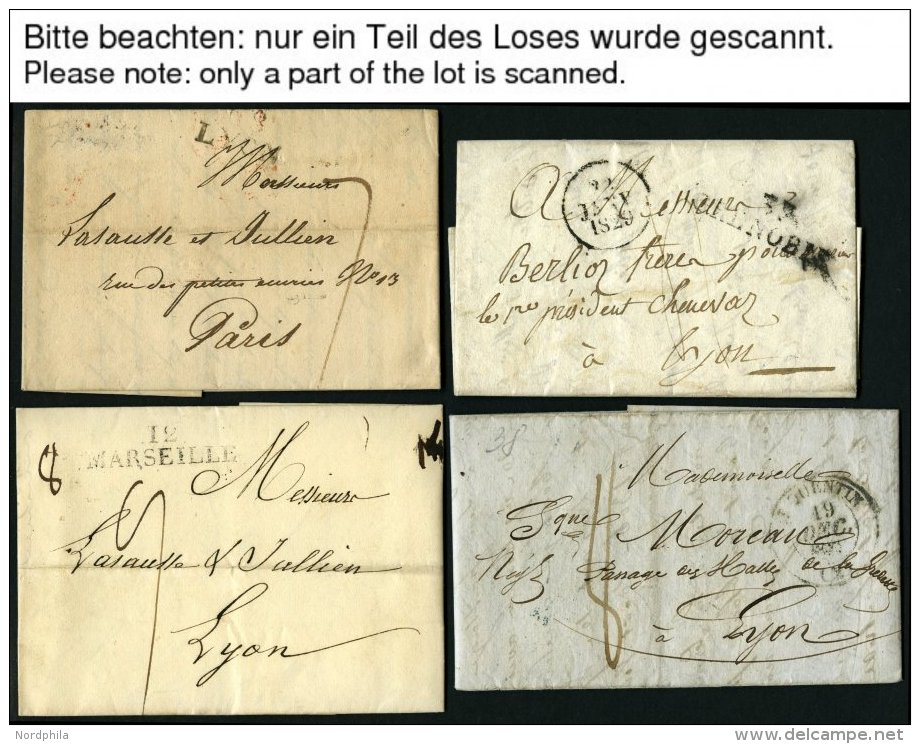 Bitte beachten: nur ein Teil des Loses wurde gescannt.
Please note: only a part of the lot is scanned.
L
Messieurs
Lasausse et Jullien
rue des petites ecuries No 13
Paris
7
22
JANV
1829
A Messieurs
GRENOBLE
Berlioz frères pour
le 1er président Chenevaz
à Lyon
12
MARSEILLE
8
Messieurs
Lasausse & Jullien
Lyon
38
Mademoiselle
Moreau
Passage des Halles de la
à Lyon
ST QUENTIN
19
DEC
Nordphila
www.delcampe.net